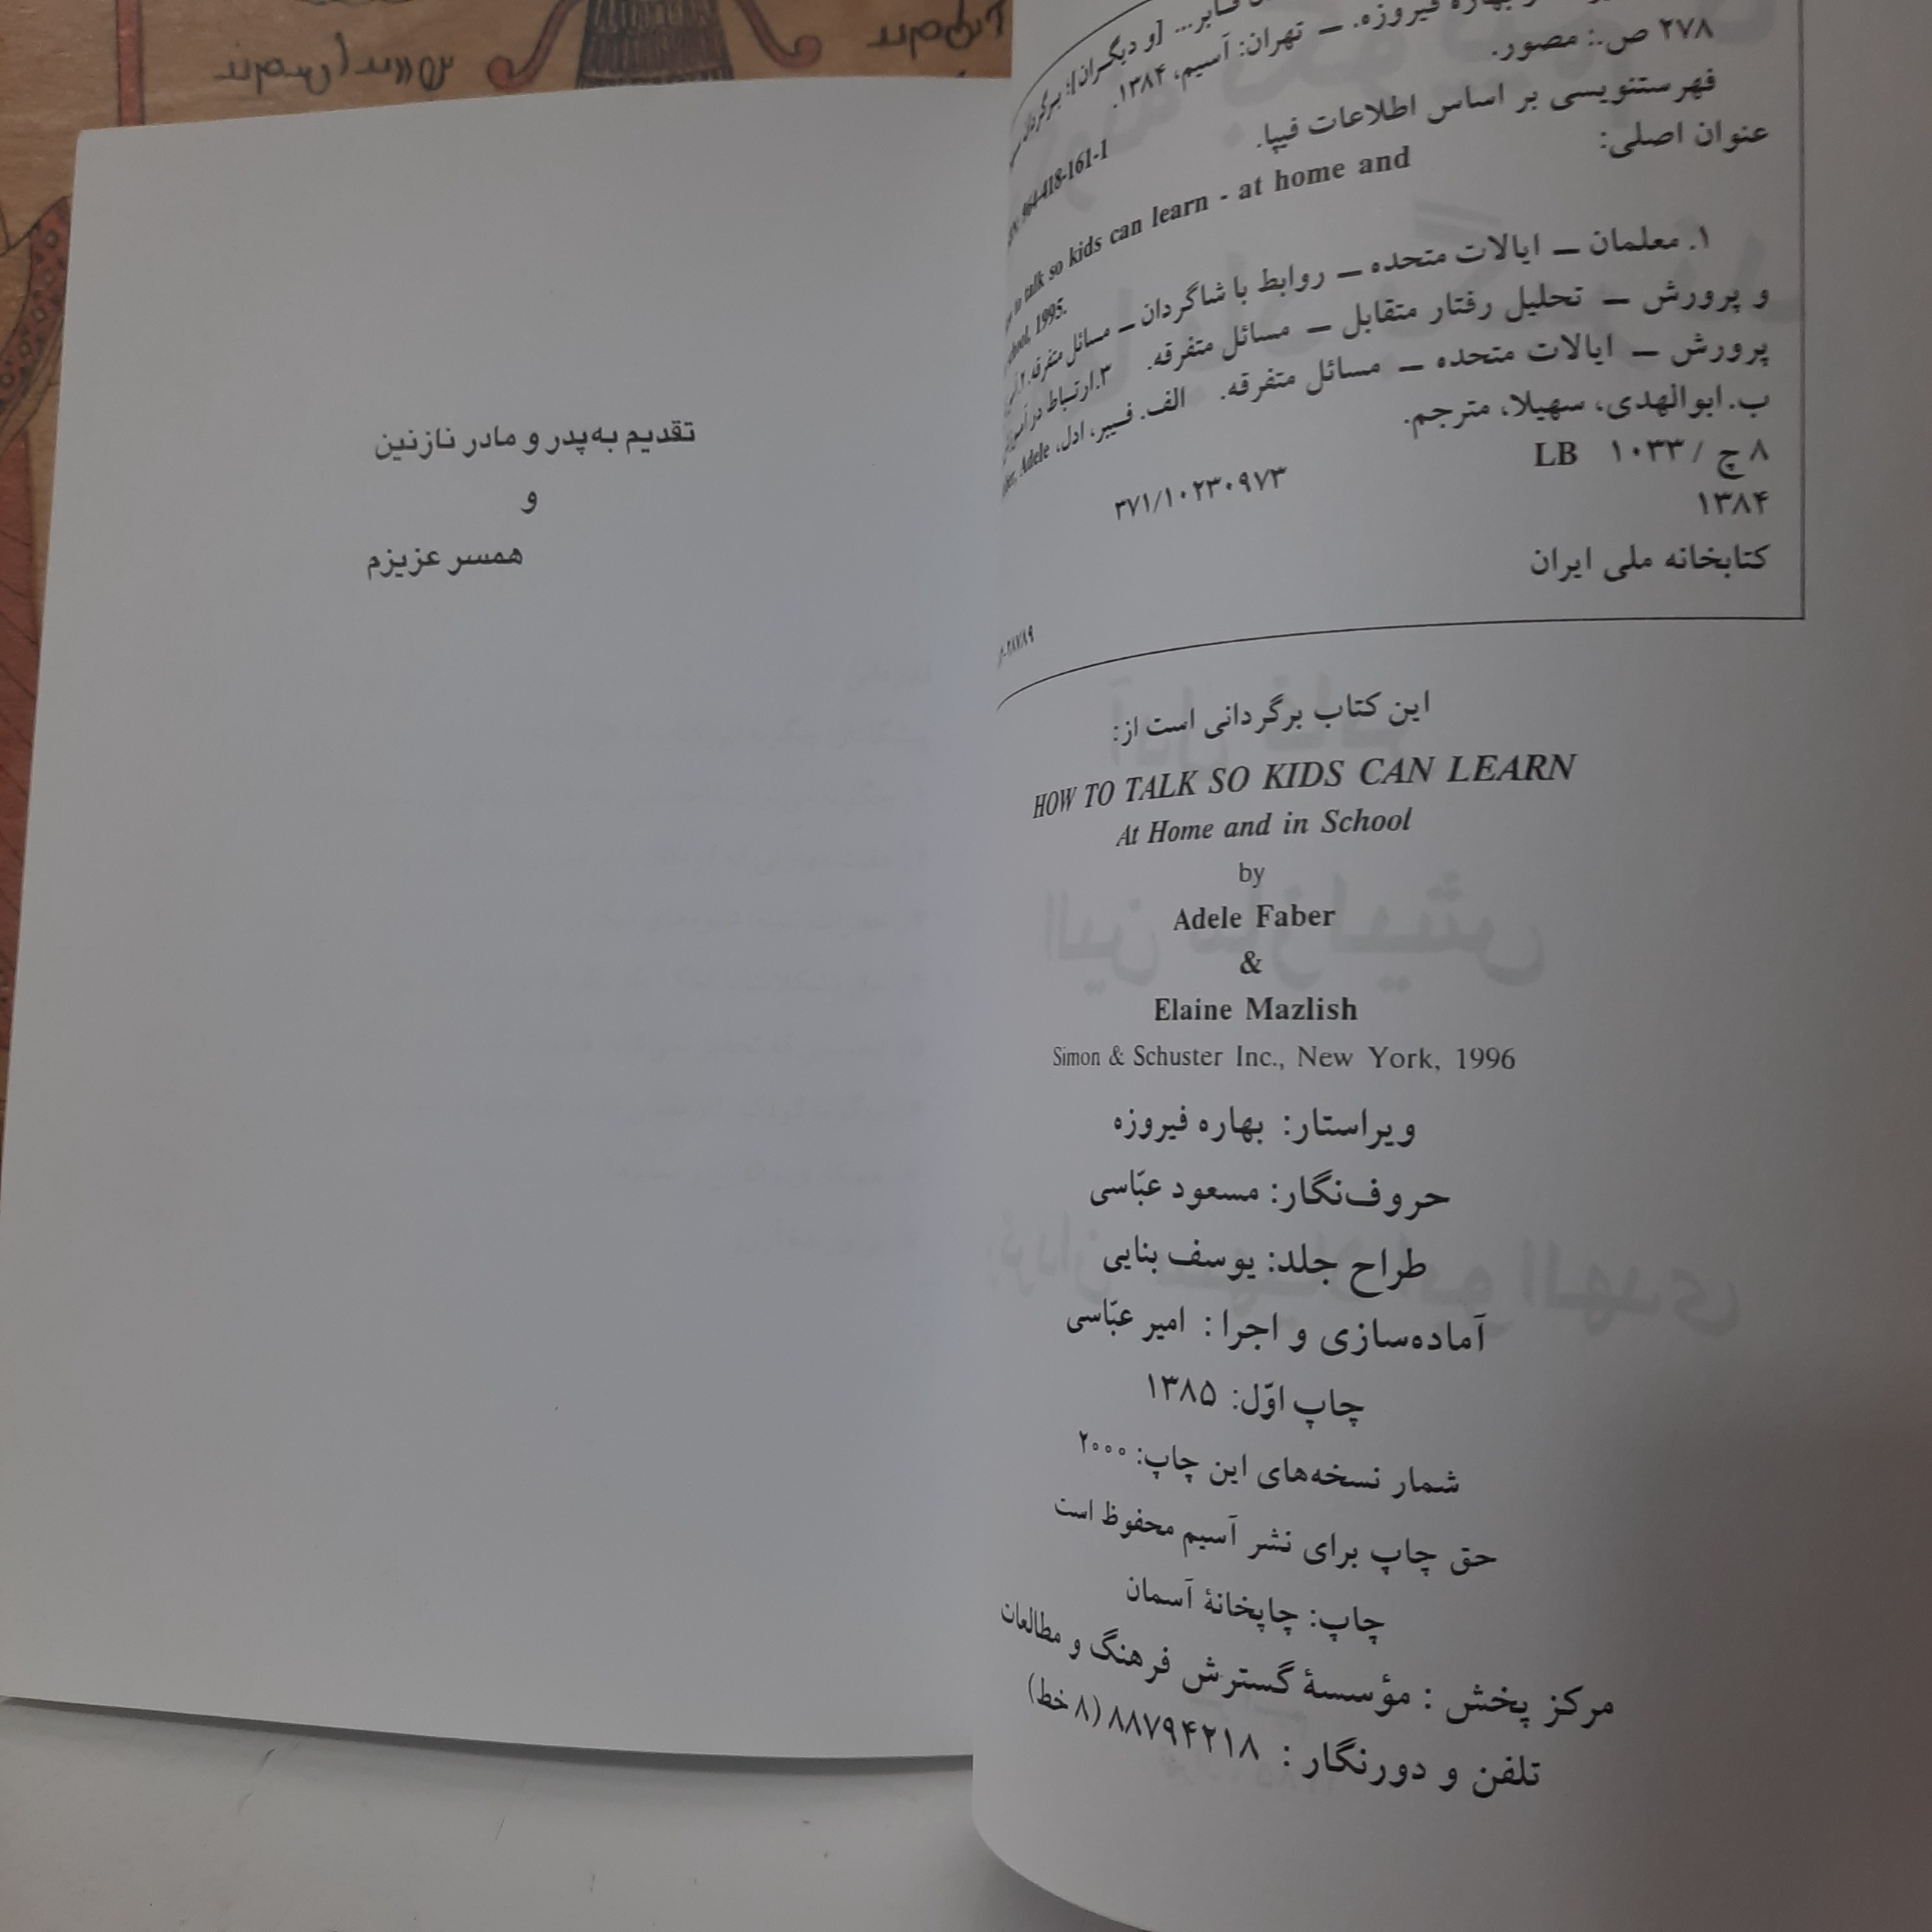 فابر... [و دیگران]؛ برگردان
بهاره فیروزه. – تهران: آسیم، ۱۳۸۴.
۲۷۸ ص.: مصور.
964-418-161-1
فهرستنویسی بر اساس اطلاعات فیپا.
عنوان اصلی:
to talk so kids can learn - at home and
1995.
۱. معلمان – ایالات متحده – روابط با شاگردان – مسائل متفرقه. ۲.
و پرورش – تحلیل رفتار متقابل – مسائل متفرقه. ۳. ارتباط در
پرورش – ایالات متحده – مسائل متفرقه. الف. فیبر، ادل، Adele
ب. ابوالهدی، سهیلا، مترجم.
۸ چ / ۱۰۳۳ LB
۳۷۱/۱۰۲۳۰۹۷۳
۱۳۸۴
کتابخانه ملی ایران
این کتاب برگردانی است از:
HOW TO TALK SO KIDS CAN LEARN
At Home and in School
by
Adele Faber
&
Elaine Mazlish
Simon & Schuster Inc., New York, 1996
ویراستار: بهاره فیروزه
حروف‌نگار: مسعود عبّاسی
طراح جلد: یوسف بنایی
آماده‌سازی و اجرا: امیر عبّاسی
چاپ اوّل: ۱۳۸۵
شمار نسخه‌های این چاپ: ۲۰۰۰
حق چاپ برای نشر آسیم محفوظ است
چاپ: چاپخانهٔ آسمان
مرکز پخش: مؤسسهٔ گسترش فرهنگ و مطالعات
تلفن و دورنگار: ۸۸۷۹۴۲۱۸ (۸ خط)
تقدیم به پدر و مادر نازنین
و
همسر عزیزم